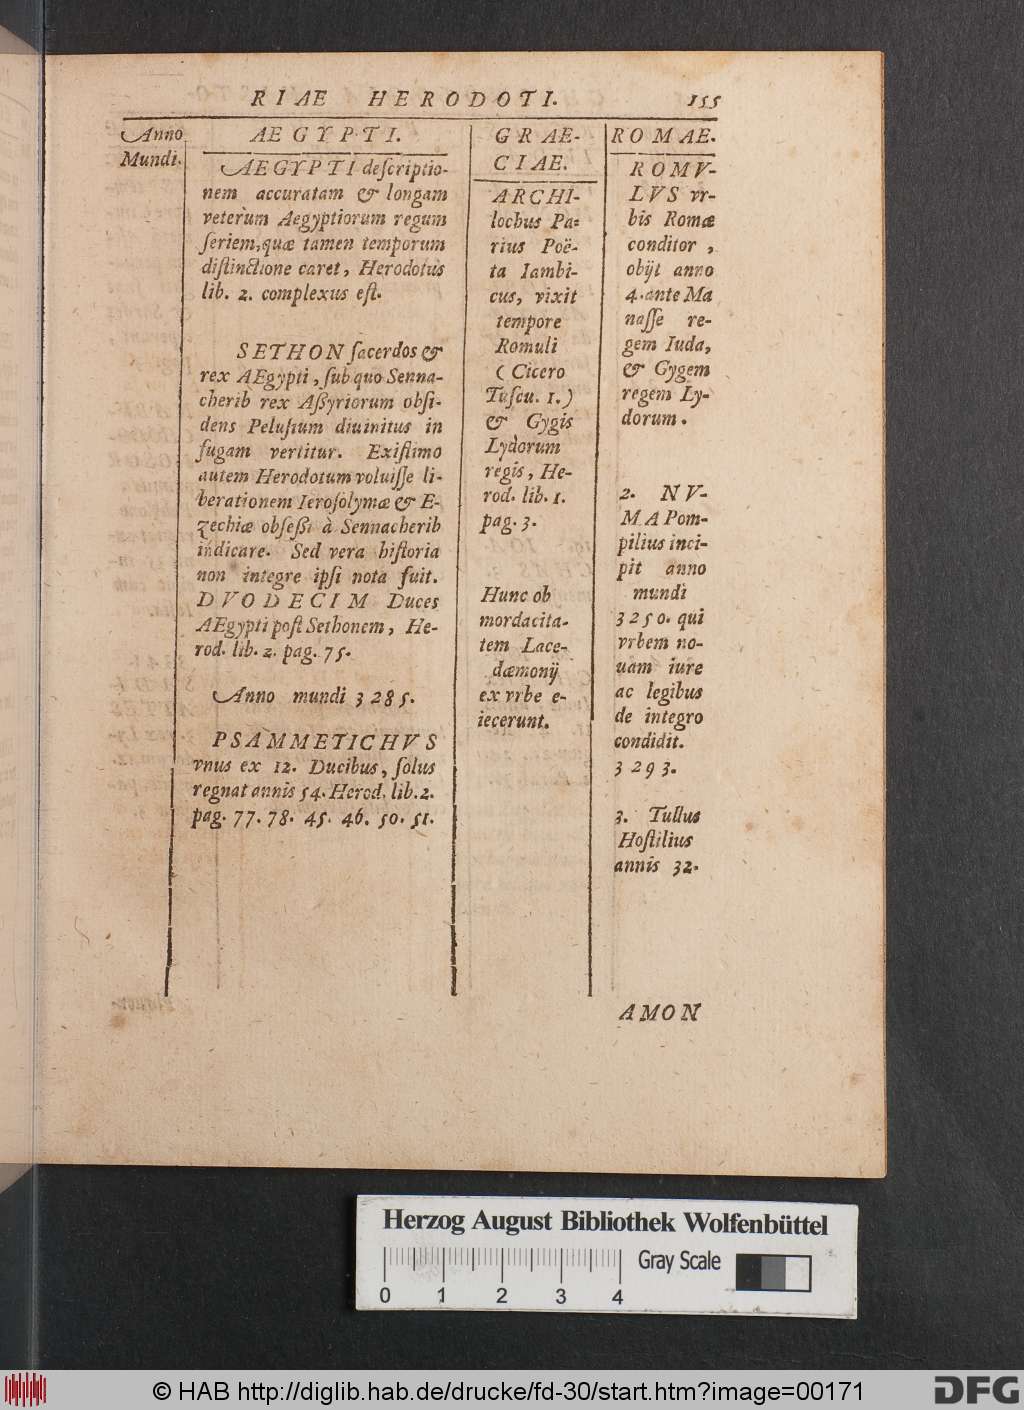 RIAE HERODOTI. 155
Anno
Mundi.
AEGYPTI.
AEGYPTI deſcriptio-
nem accuratam & longam
veterum Aegyptiorum regum
ſeriem, quæ tamen temporum
diſtinctione caret, Herodotus
lib. 2. complexus eſt.
SETHON ſacerdos &
rex AEgypti, ſub quo Senna-
cherib rex Aßyriorum obſi-
dens Peluſium diuinitus in
fugam vertitur. Exiſtimo
autem Herodotum voluiſſe li-
berationem Ieroſolymæ & E-
zechiæ obſeßi à Sennacherib
indicare. Sed vera hiſtoria
non integre ipſi nota fuit.
DVODECIM Duces
AEgypti poſt Sethonem, He-
rod. lib. 2. pag. 75.
Anno mundi 3285.
PSAMMETICHVS
vnus ex 12. Ducibus, ſolus
regnat annis 54. Herod. lib. 2.
pag. 77. 78. 45. 46. 50. 51.
GRAE-
CIAE.
ARCHI-
lochus Pa-
rius Poë-
ta Iambi-
cus, vixit
tempore
Romuli
(Cicero
Tuſcu. 1.)
& Gygis
Lydorum
regis, He-
rod. lib. 1.
pag. 3.
Hunc ob
mordacita-
tem Lace-
dæmonij
ex vrbe e-
iecerunt.
ROMAE.
ROMV-
LVS vr-
bis Romæ
conditor,
obijt anno
4. ante Ma
naſſe re-
gem Iuda,
& Gygem
regem Ly-
dorum.
2. NV-
MA Pom-
pilius inci-
pit anno
mundi
3250. qui
vrbem no-
uam iure
ac legibus
de integro
condidit.
3293.
3. Tullus
Hoſtilius
annis 32.
AMON
Herzog August Bibliothek Wolfenbüttel
Gray Scale
0 1 2 3 4
© HAB http://diglib.hab.de/drucke/fd-30/start.htm?image=00171
DFG